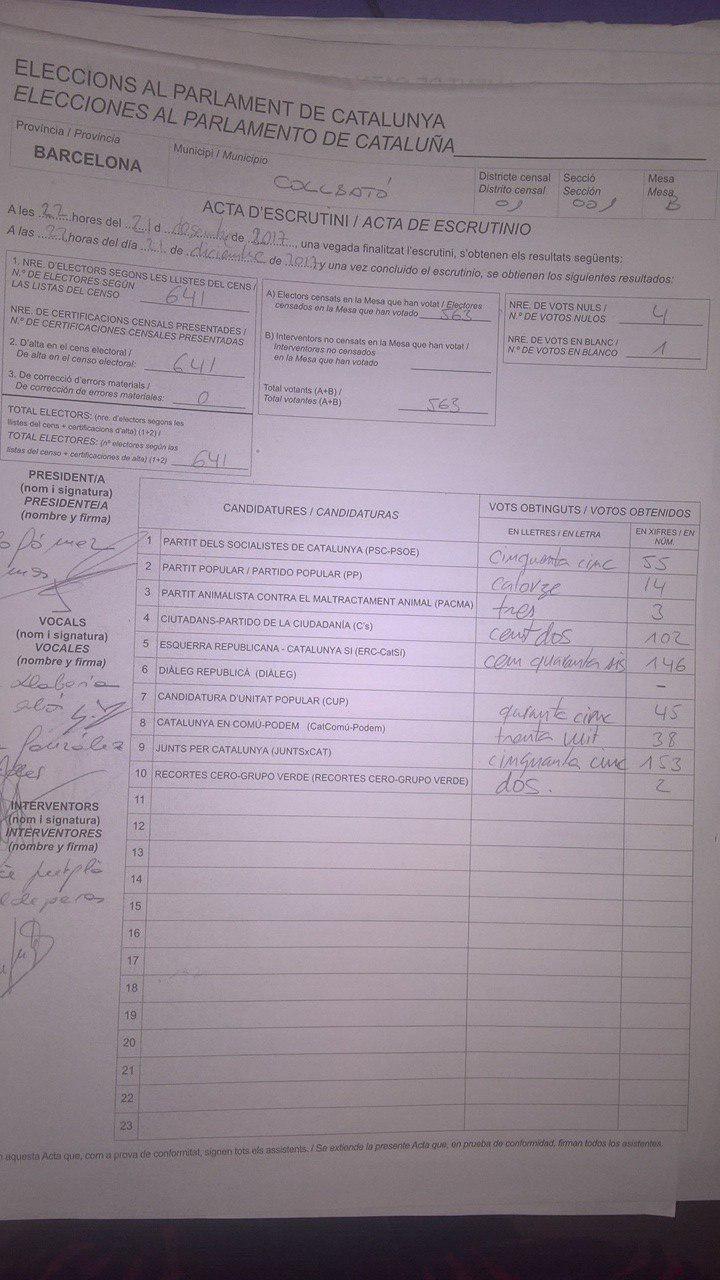 ELECCIONS AL PARLAMENT DE CATALUNYA
ELECCIONES AL PARLAMENTO DE CATALUÑA
Província / Provincia
BARCELONA
Municipi / Municipio
COLLBATÓ
Districte censal
Distrito censal
01
Secció
Sección
001
Mesa
Mesa
B
ACTA D'ESCRUTINI / ACTA DE ESCRUTINIO
A les 22 hores del 21 d desembre de 2017, una vegada finalitzat l'escrutini, s'obtenen els resultats següents:
A las 22 horas del día 21 de diciembre de 2017 y una vez concluido el escrutinio, se obtienen los siguientes resultados:
1. NRE. D'ELECTORS SEGONS LES LLISTES DEL CENS /
N.º DE ELECTORES SEGÚN
LAS LISTAS DEL CENSO 641
NRE. DE CERTIFICACIONS CENSALS PRESENTADES /
N.º DE CERTIFICACIONES CENSALES PRESENTADAS
2. D'alta en el cens electoral /
De alta en el censo electoral: 641
3. De correcció d'errors materials /
De corrección de errores materiales: 0
TOTAL ELECTORS: (nre. d'electors segons les
llistes del cens + certificacions d'alta) (1+2) /
TOTAL ELECTORES: (nº electores según las
listas del censo + certificaciones de alta) (1+2) 641
A) Electors censats en la Mesa que han votat / Electores
censados en la Mesa que han votado 563
B) Interventors no censats en la Mesa que han votat /
Interventores no censados
en la Mesa que han votado
Total votants (A+B) /
Total votantes (A+B) 563
NRE. DE VOTS NULS /
N.º DE VOTOS NULOS 4
NRE. DE VOTS EN BLANC /
N.º DE VOTOS EN BLANCO 1
PRESIDENT/A
(nom i signatura)
PRESIDENTE/A
(nombre y firma)
VOCALS
(nom i signatura)
VOCALES
(nombre y firma)
González
INTERVENTORS
(nom i signatura)
INTERVENTORES
(nombre y firma)
CANDIDATURES / CANDIDATURAS
VOTS OBTINGUTS / VOTOS OBTENIDOS
EN LLETRES / EN LETRA
EN XIFRES / EN NÚM.
1 PARTIT DELS SOCIALISTES DE CATALUNYA (PSC-PSOE) Cinquanta cinc 55
2 PARTIT POPULAR / PARTIDO POPULAR (PP) catorze 14
3 PARTIT ANIMALISTA CONTRA EL MALTRACTAMENT ANIMAL (PACMA) tres 3
4 CIUTADANS-PARTIDO DE LA CIUDADANÍA (C's) cent dos 102
5 ESQUERRA REPUBLICANA - CATALUNYA SI (ERC-CatSí) cem quaranta sis 146
6 DIÀLEG REPUBLICÀ (DIÀLEG) -
7 CANDIDATURA D'UNITAT POPULAR (CUP) quranta cinc 45
8 CATALUNYA EN COMÚ-PODEM (CatComú-Podem) trenta vuit 38
9 JUNTS PER CATALUNYA (JUNTSxCAT) cinquanta cinc 153
10 RECORTES CERO-GRUPO VERDE (RECORTES CERO-GRUPO VERDE) dós. 2
11
12
13
14
15
16
17
18
19
20
21
22
23
aquesta Acta que, com a prova de conformitat, signen tots els assistents. / Se extiende la presente Acta que, en prueba de conformidad, firman todos los asistentes.